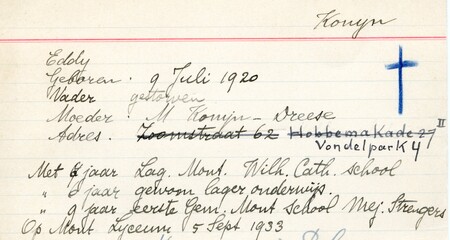 Konijn
Eddy
Geboren : 9 Juli 1920
Vader gestorven
Moeder : M Konijn - Dreese
Adres . Zoomstraat 62 Hobbemakade 27 II
Vondelpark 4
Met 6 jaar Lag. Mont. Wilh. Cath. school
" 8 jaar gewoon lager onderwijs.
" 9 jaar eerste Gem. Mont School Mej. Strengers
Op Mont Lyceum 5 Sept 1933